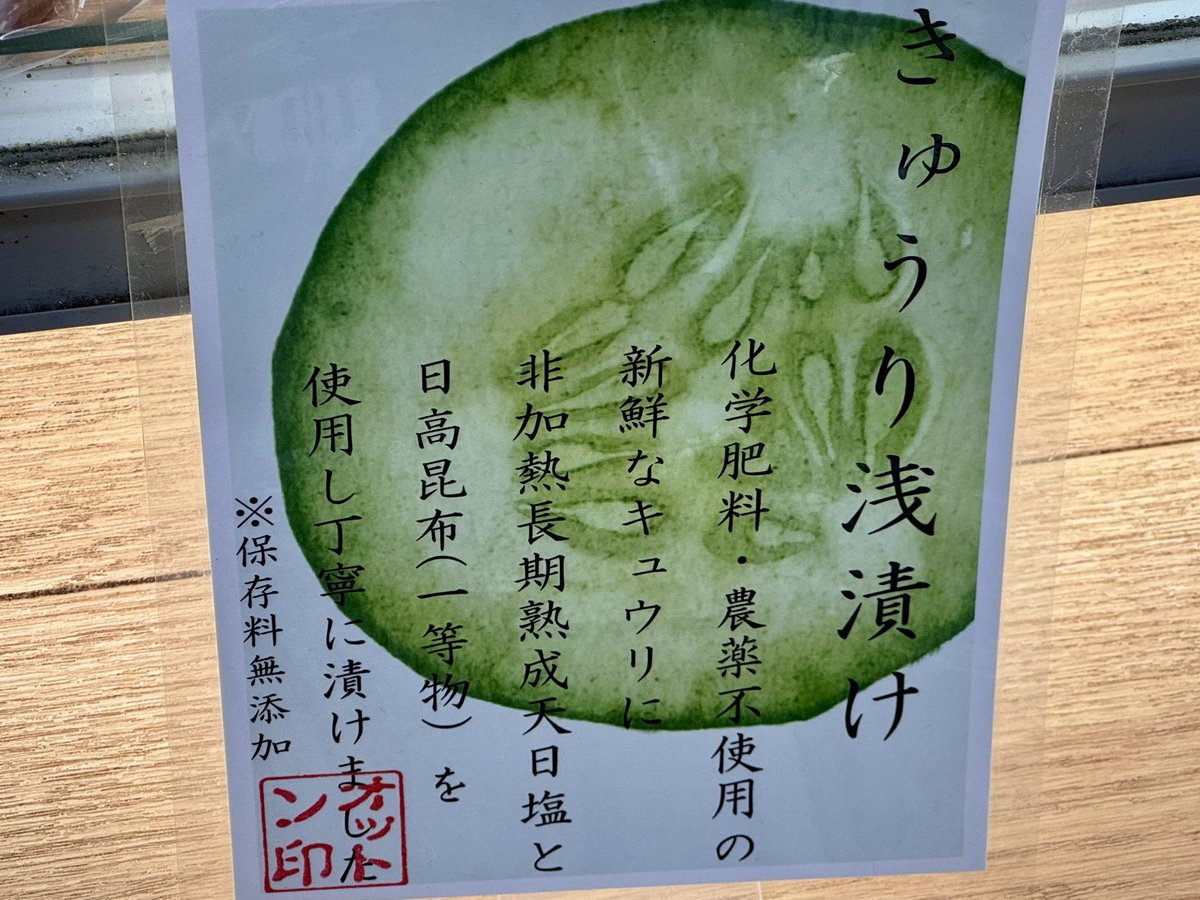 きゅうり浅漬け
化学肥料・農薬不使用の
新鮮なキュウリに
非加熱長期熟成天日塩と
日高昆布(一等物)を
使用し丁寧に漬けました
※保存料無添加
オットン印